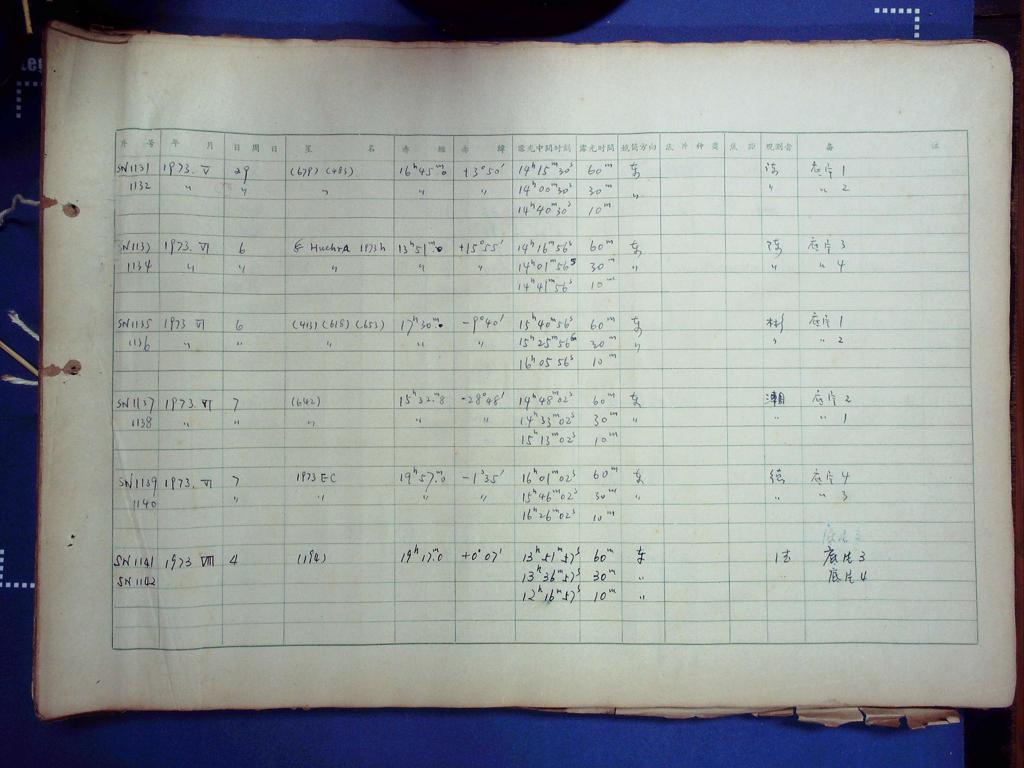 片 号 年 月 日 期 日 星 名 赤 經 赤 緯 露光中間时刻 露光时間 鏡筒方向 底片种类 焦距 观測者 备 註
SN1131 1973. V 29 (679) (483) 16ʰ45ᵐ.0 +3°50′ 14ʰ15ᵐ30ˢ 60ᵐ 东 底片 1
1132 〃 〃 〃 〃 〃 14ʰ00ᵐ30ˢ 30ᵐ 〃 〃 〃 2
14ʰ40ᵐ30ˢ 10ᵐ
SN1133 1973. VI 6 Huchra 1973h 13ʰ51ᵐ.0 +15°55′ 14ʰ16ᵐ56ˢ 60ᵐ 东 底片 3
1134 〃 〃 〃 〃 〃 14ʰ01ᵐ56ˢ 30ᵐ 〃 〃 〃 4
14ʰ41ᵐ56ˢ 10ᵐ
SN1135 1973 VI 6 (413) (618) (653) 17ʰ30ᵐ.0 -9°40′ 15ʰ40ᵐ56ˢ 60ᵐ 东 彬 底片 1
1136 〃 〃 〃 〃 〃 15ʰ25ᵐ56ˢ 30ᵐ 〃 〃 〃 2
16ʰ05 56ˢ 10ᵐ
SN1137 1973. VI 7 (642) 15ʰ32.ᵐ8 -28°48′ 14ʰ48ᵐ02ˢ 60ᵐ 东 底片 2
1138 〃 〃 〃 〃 〃 14ʰ33ᵐ02ˢ 30ᵐ 〃 〃 〃 1
15ʰ13ᵐ02ˢ 10ᵐ
SN1139 1973. VI 7 1973 EC 19ʰ57ᵐ.0 -1°35′ 16ʰ01ᵐ02ˢ 60ᵐ 东 底片 4
1140 〃 〃 〃 〃 15ʰ46ᵐ02ˢ 30ᵐ 〃 〃 〃 3
16ʰ26ᵐ02ˢ 10ᵐ
SN1141 1973 VIII 4 (194) 19ʰ17ᵐ.0 +0°07′ 13ʰ51ᵐ57ˢ 60ᵐ 东 底片 3
SN1142 13ʰ36ᵐ57ˢ 30ᵐ 〃 〃 底片 4
12ʰ16ᵐ57ˢ 10ᵐ 〃